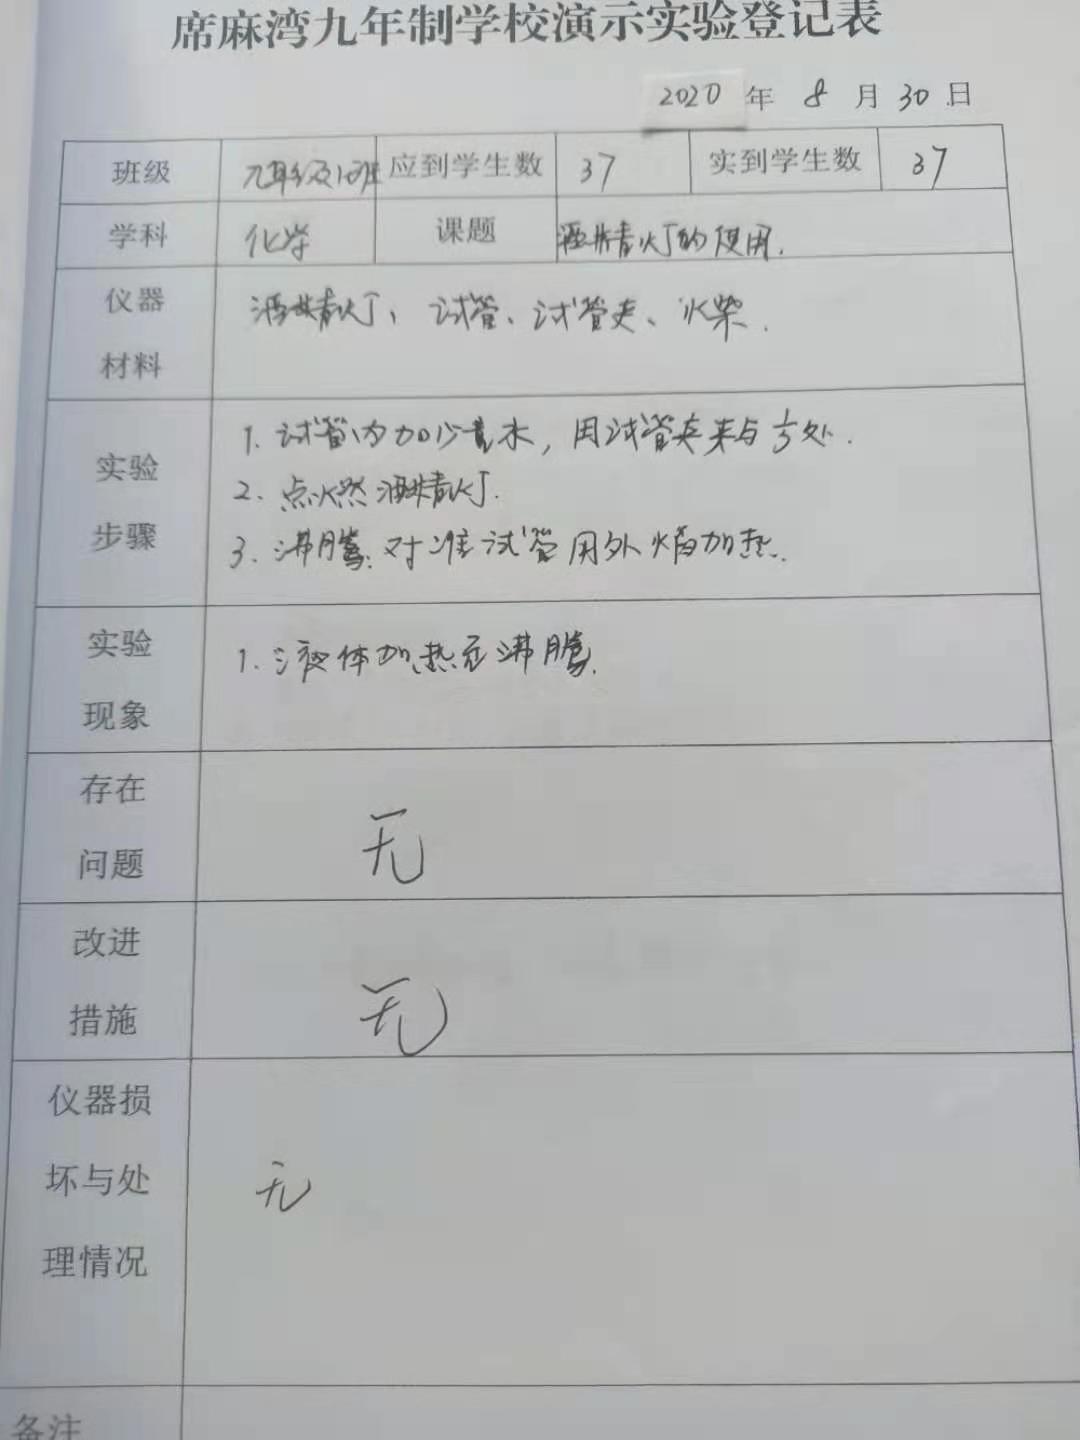 席麻湾九年制学校演示实验登记表
2020 年 8 月 30 日
班级 九年级(1)班 应到学生数 37 实到学生数 37
学科 化学 课题 酒精灯的使用.
仪器材料 酒精灯、试管、试管夹、火柴.
实验步骤
1. 试管内加少量水,用试管夹夹与⅓处.
2. 点燃酒精灯.
3. 沸腾:对准试管用外焰加热.
实验现象
1. 液体加热至沸腾.
存在问题 无
改进措施 无
仪器损坏与处理情况 无
备注